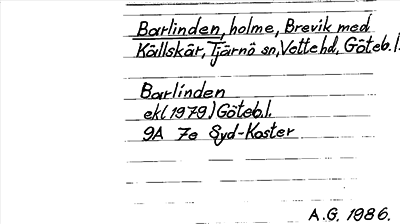 Barlinden, holme, Brevik med
Källskär, Tjärnö sn, Vettehd, Göteb.l.
Barlinden
ekl (1979) Göteb.l.
9A 7e Syd-Koster
A.G. 1986.